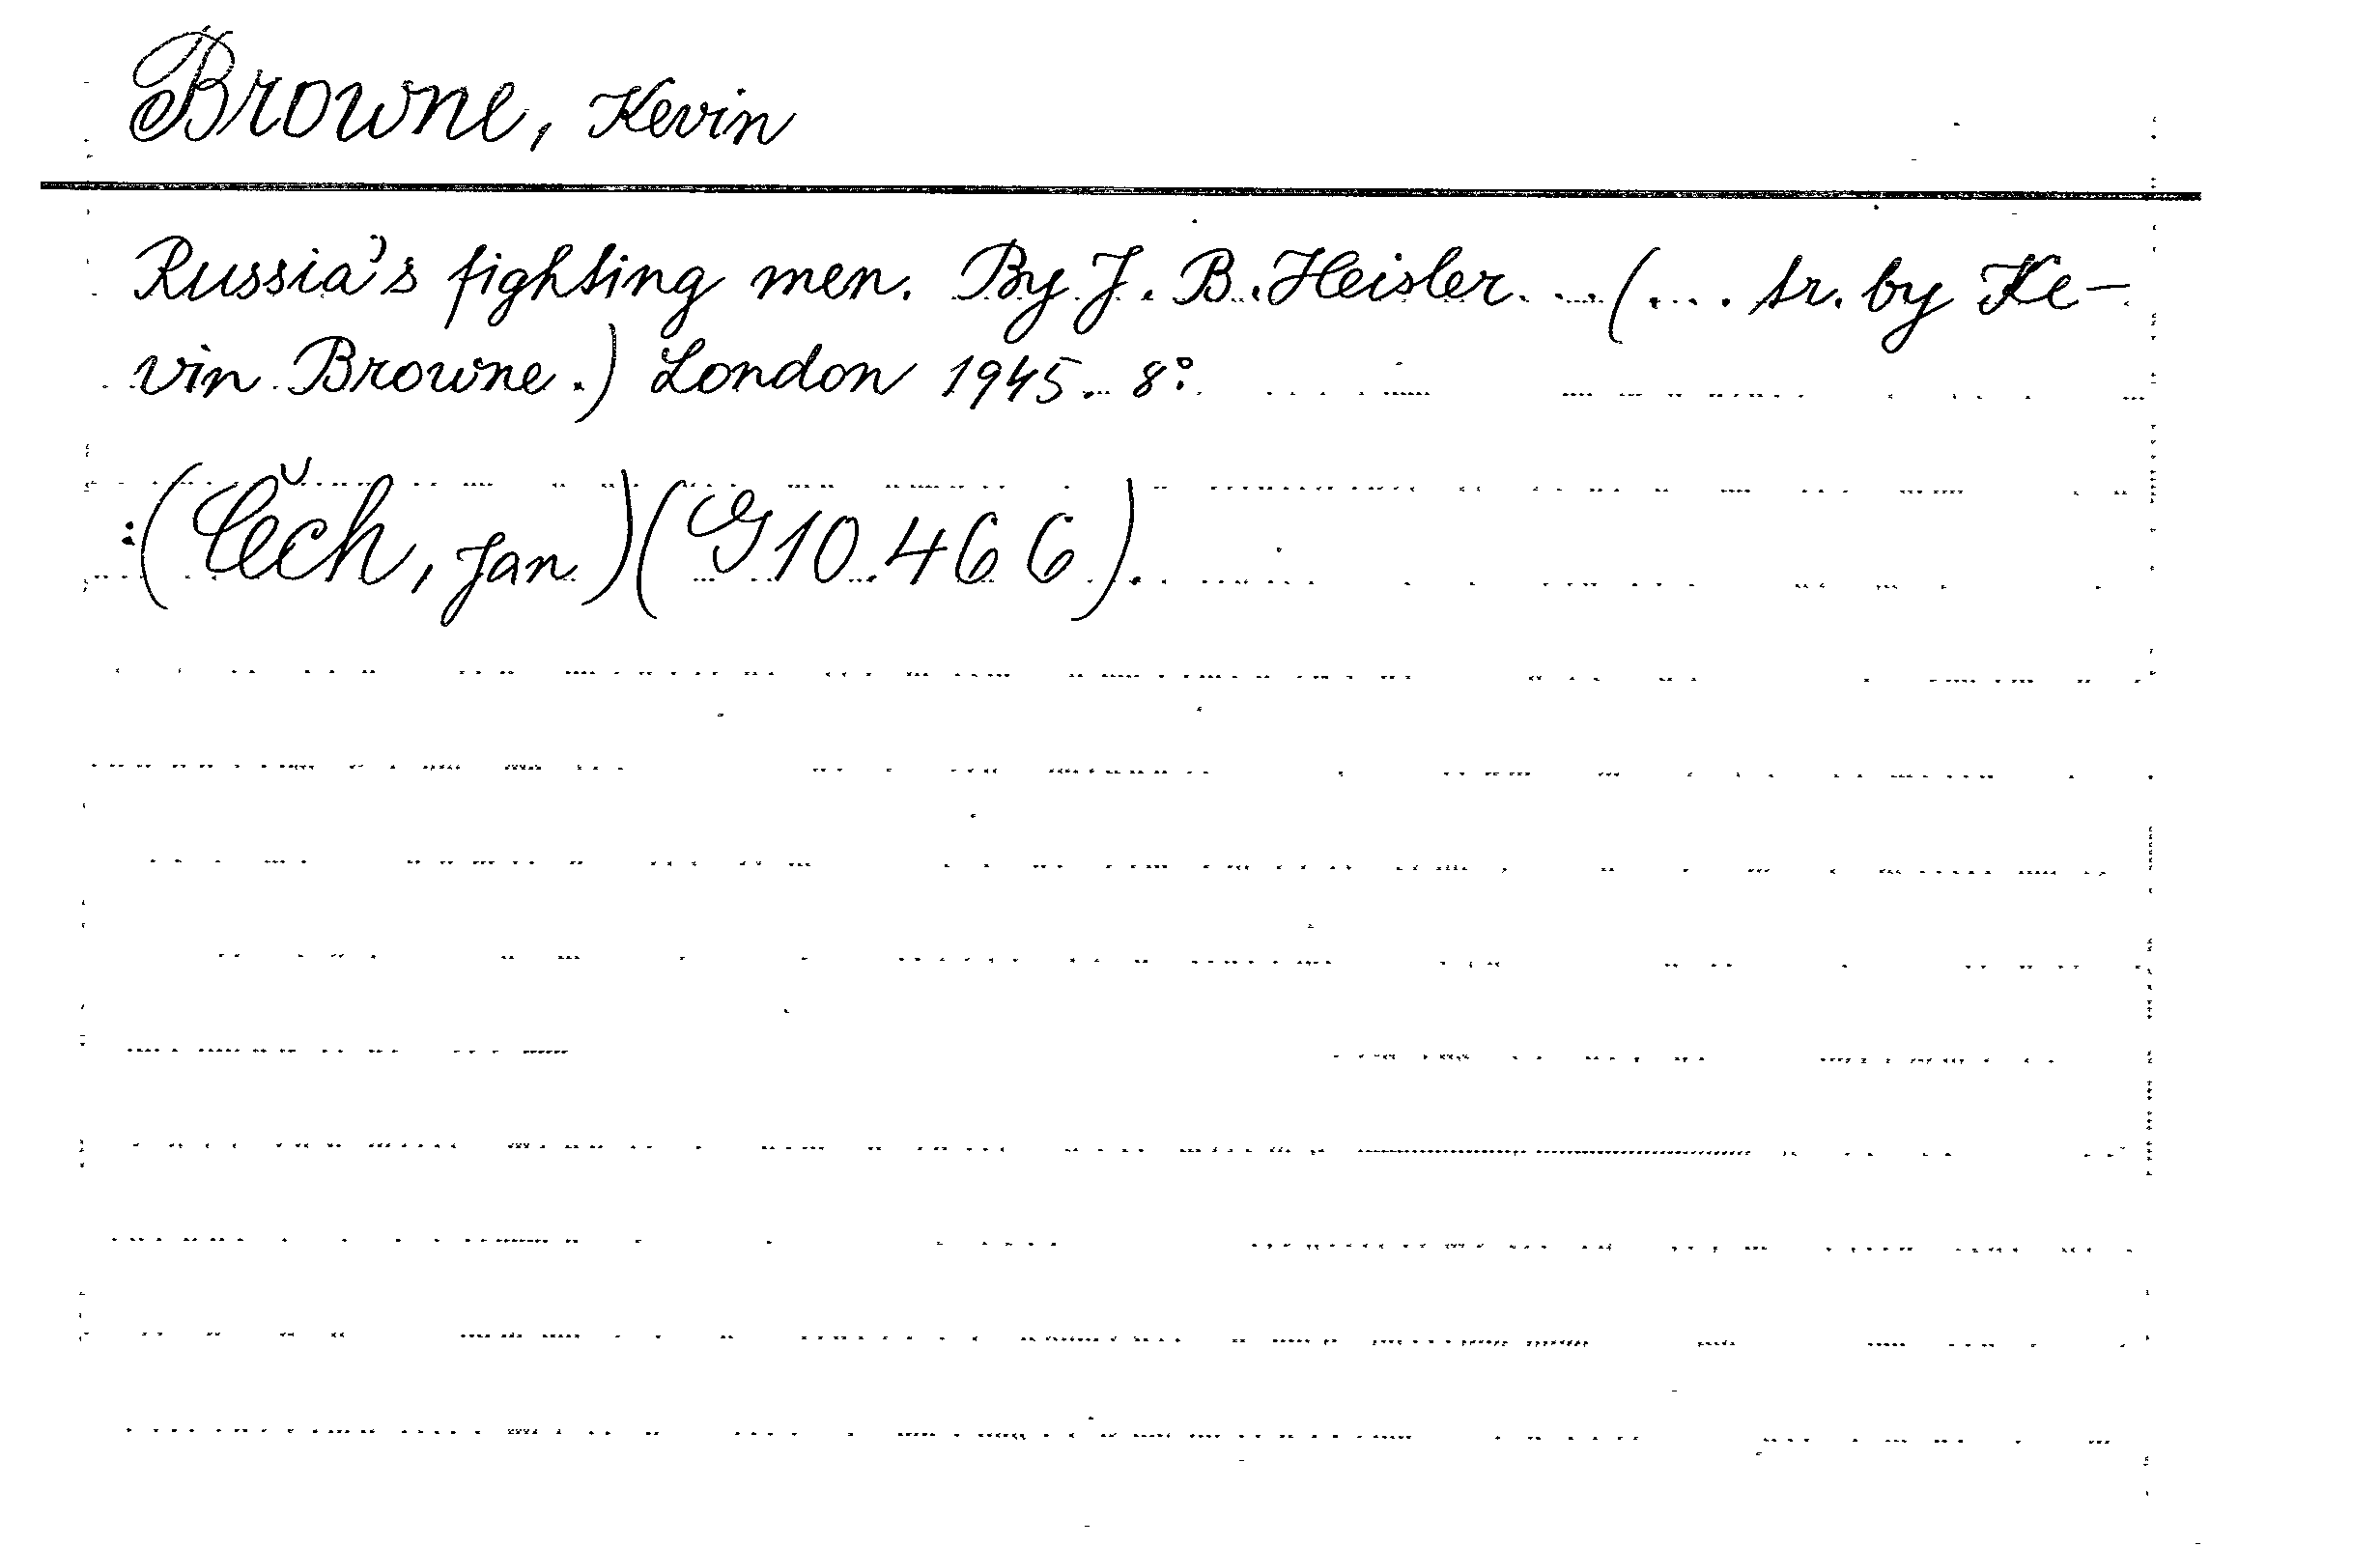 Browne, Kevin
Russia's fighting men. By J. B. Heisler ... (... tr. by Ke-
vin Browne.) London 1945. 8°.
:(Čech, Jan)(G 10.466).